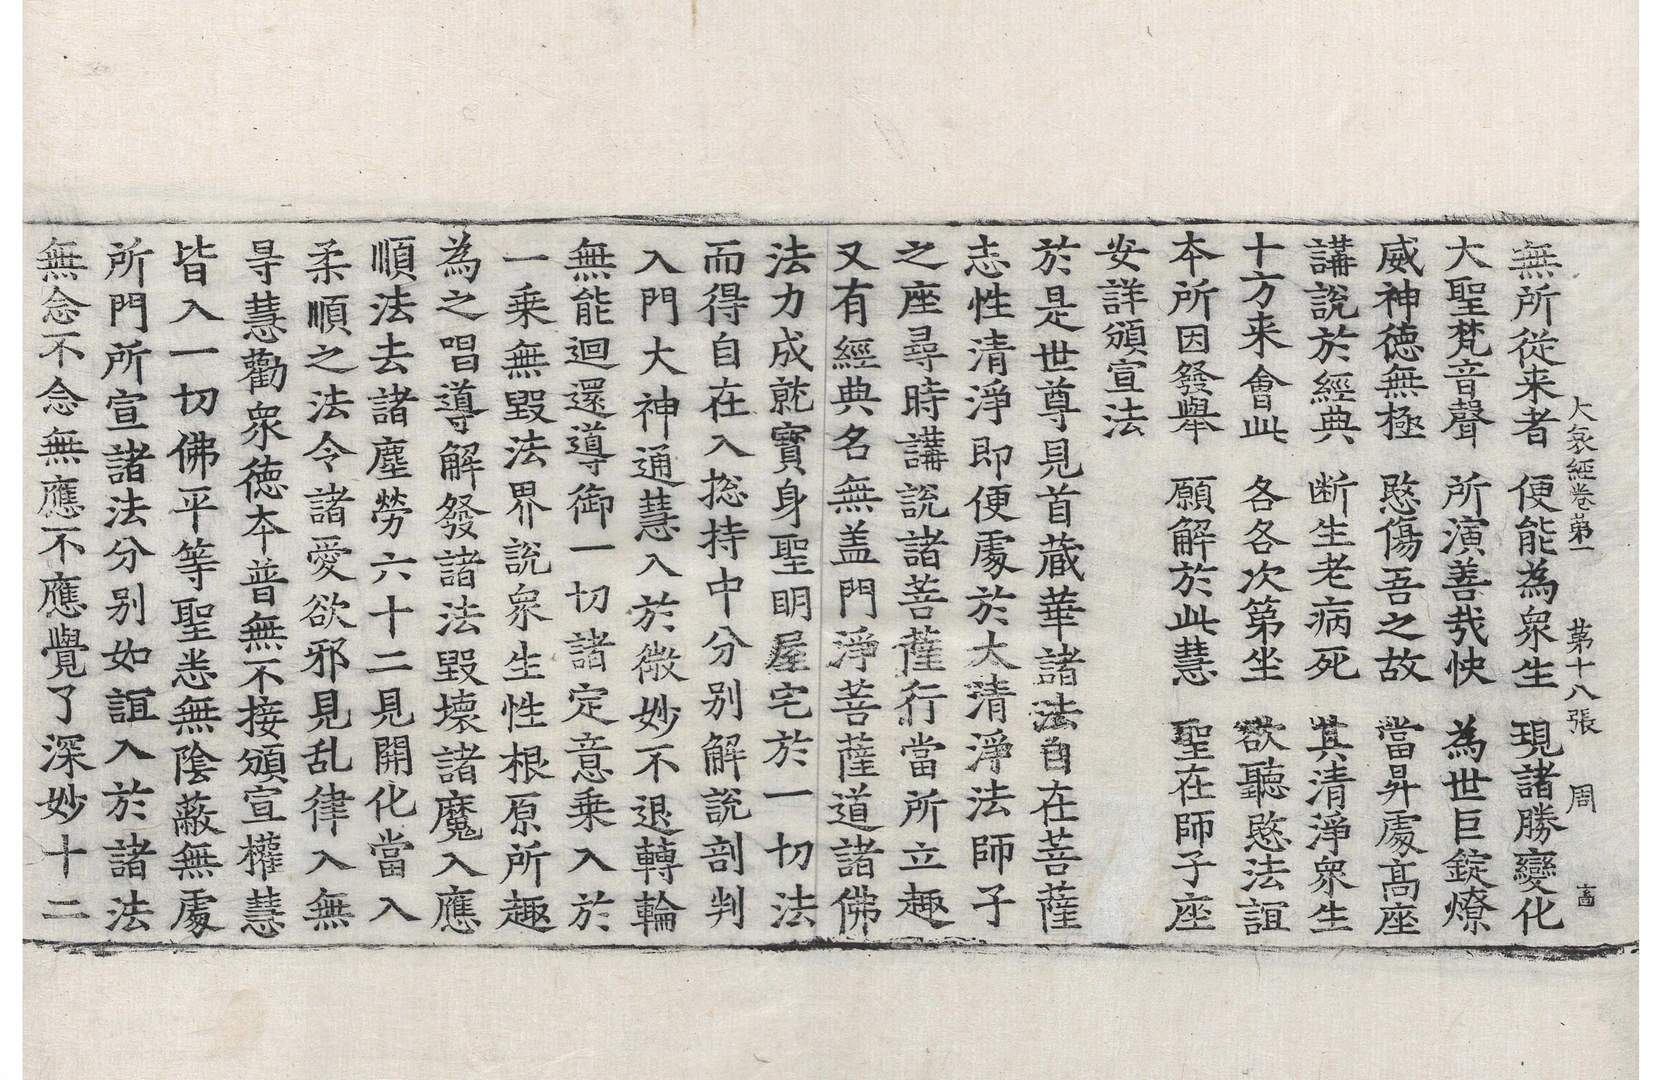 大哀經卷第一 第十八張 周 啚
無所從来者 便能為衆生 現諸勝變化
大聖梵音聲 所演善哉快 為世巨錠燎
威神徳無極 愍傷吾之故 當昇處髙座
講說於經典 断生老病死 其清淨衆生
十方来會此 各各次第坐 欲聽愍法誼
本所因發舉 願解於此慧 聖在師子座
安詳頒宣法
於是世尊見首蔵華諸法自在菩薩
志性清淨即便處於大清淨法師子
之座尋時講說諸菩薩行當所立趣
又有經典名無盖門淨菩薩道諸佛
法力成就寳身聖明屋宅於一切法
而得自在入捴持中分別解說剖判
入門大神通慧入於微妙不退轉輪
無能迴還導御一切諸定意乗入於
一乗無毀法界說衆生性根原所趣
為之唱導解發諸法毀壊諸魔入應
順法去諸塵勞六十二見開化當入
柔順之法令諸愛欲邪見乱律入無
㝵慧勸衆徳本普無不接頒宣權慧
皆入一切佛平等聖悉無陰蔽無處
所門所宣諸法分別如誼入於諸法
無念不念無應不應覺了深妙十二